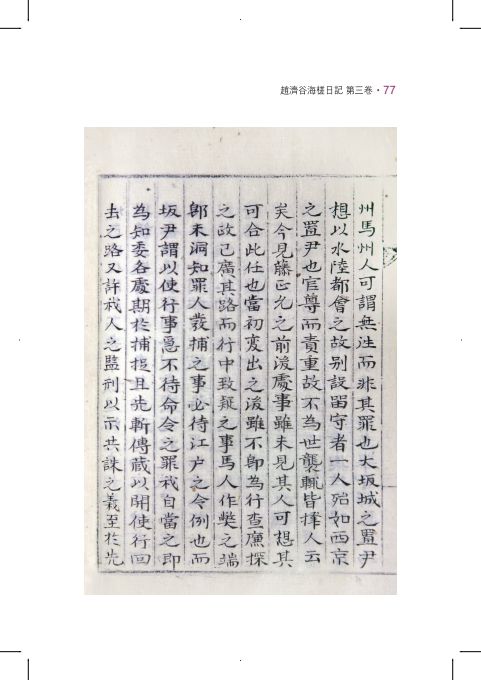 趙濟谷海槎日記 第三卷 · 77
州馬州人可謂無往而非其罪也大坂城之置尹
想以水陸都會之故別設留守者一人殆如西京
之置尹也官尊而責重故不為世襲輒皆擇人云
矣今見藤正允之前後處事雖未見其人可想其
可合此任也當初変出之後雖不卽為行查廉探
之政已廣其路而行中致疑之事馬人作弊之端
卽未洞知罪人發捕之事必待江戶之令例也而
坂尹謂以使行事急不待命令之罪我自當之卽
為知委各處期於捕捉且先斬傳藏以開使行回
去之路又許我人之監刑以示共誅之義至於先